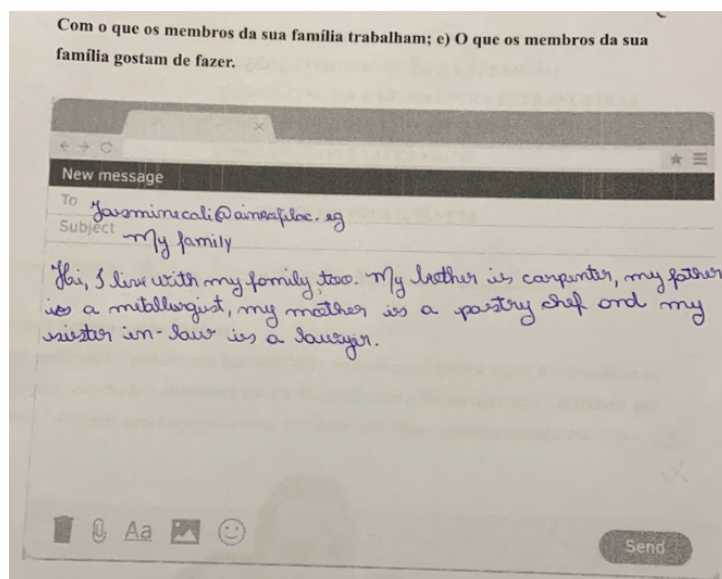 Com o que os membros da sua família trabalham; e) O que os membros da sua
família gostam de fazer.
New message
To
Subject My family
Hi, I live with my family, too. My brother is carpinter, my father
is a mitallurgist, my mother is a pastry chef and my
sister in-law is a lawyer.
Aa
Send